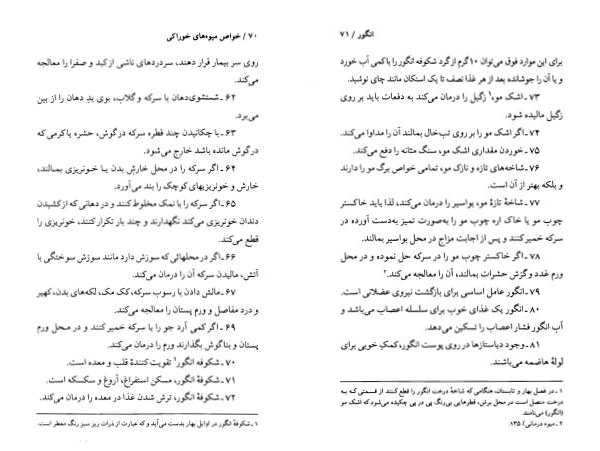 ۷۰ / خواص میوه‌های خوراکی
روی سر بیمار قرار دهند، سردردهای ناشی از کبد و صفرا را معالجه
می‌کند.
۶۲ ـ شستشوی دهان با سرکه و گلاب، بوی بدِ دهان را از بین
می‌برد.
۶۳ ـ با چکانیدن چند قطره سرکه در گوش، حشره یا کرمی که
در گوش مانده باشد خارج می‌شود.
۶۴ ـ اگر سرکه را در محل خارش بدن یا خونریزی بمالند،
خارش و خونریزیهای کوچک را بند می‌آورد.
۶۵ ـ اگر سرکه را با نمک مخلوط کنند و در دهانی که از کشیدن
دندان خونریزی می‌کند نگهدارند و چند بار تکرار کنند، خونریزی را
قطع می‌کند.
۶۶ ـ اگر در محلهائی که سوزش دارد مانند سوزش سوختگی با
آتش، مالیدن سرکه آن را درمان می‌کند.
۶۷ ـ مالش دادن با رسوب سرکه، کک مک، لکه‌های بدن، کهیر
و درد مفاصل و ورم پستان را معالجه می‌کند.
۶۹ ـ اگر کمی آرد جو را با سرکه خمیر کنند و در محل ورم
پستان و بناگوش بگذارند ورم را درمان می‌کند.
۷۰ ـ شکوفه انگور۱ تقویت کنندهٔ قلب و معده است.
۷۱ ـ شکوفهٔ انگور، مسکن استفراغ، آروغ و سکسکه است.
۷۲ ـ شکوفهٔ انگور، ترش شدن غذا در معده را درمان می‌کند.
۱ ـ شکوفهٔ انگور در اوایل بهار بدست می‌آید و که عبارت از ذرات ریز سبز رنگ معطر است.
انگور / ۷۱
برای این موارد فوق می‌توان ۱۰ گرم از گرد شکوفه انگور را با کمی آب خورد
و یا آن را جوشانده بعد از هر غذا نصف تا یک استکان مانند چای نوشید.
۷۳ ـ اشک مو،۱ زگیل را درمان می‌کند به دفعات باید بر روی
زگیل مالیده شود.
۷۴ ـ اگر اشک مو را بر روی تب‌خال بمالند آن را مداوا می‌کند.
۷۵ ـ خوردن مقداری اشک مو، سنگ مثانه را دفع می‌کند.
۷۶ ـ شاخه‌های تازه و نازک مو، تمامی خواص برگ مو را دارند
و بلکه بهتر از آن است.
۷۷ ـ شاخهٔ تازهٔ مو، بواسیر را درمان می‌کند، لذا باید خاکستر
چوب مو یا خاک اره چوب مو را به‌صورت تمیز به‌دست آورده در
سرکه خمیر کنند و پس از اجابت مزاج در محل بواسیر بمالند.
۷۸ ـ اگر خاکستر چوب مو را در سرکه حل نموده و در محل
ورم غدد و گزش حشرات بمالند، آن را معالجه می‌کند.۲
۷۹ ـ انگور عامل اساسی برای بازگشت نیروی عضلانی است.
۸۰ ـ انگور یک غذای خوب برای سلسله اعصاب می‌باشد و
آب انگور فشار اعصاب را تسکین می‌دهد.
۸۱ ـ وجود دیاستازها در روی پوست انگور، کمک خوبی برای
لولهٔ هاضمه می‌باشند.
۱ ـ در فصل بهار و تابستان، هنگامی که شاخهٔ درخت انگور را قطع کنند از قسمتی که به
درخت متصل است در محل برش، قطرهایی بی‌رنگ پی در پی چکیده می‌شود که اشک مو
(انگور) می‌نامند.
۲ ـ میوه درمانی / ۱۳۵.